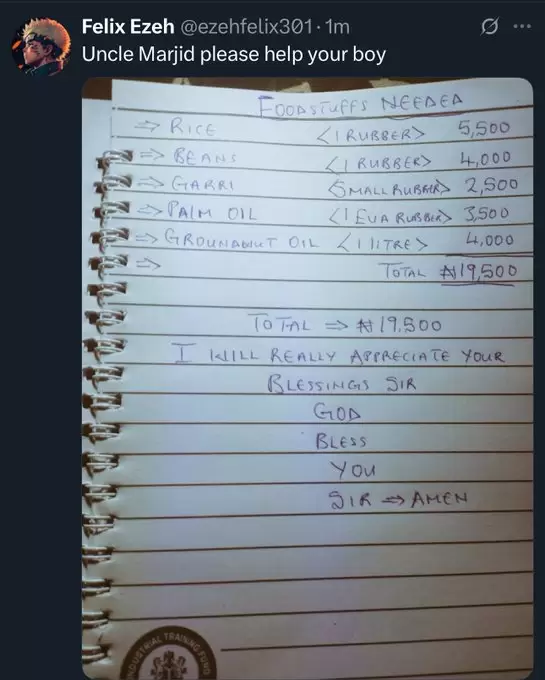 Felix Ezeh @ezehfelix301 · 1m
Uncle Marjid please help your boy
FOODSTUFFS NEEDED
⇒ RICE <1 RUBBER> 5,500
⇒ BEANS <1 RUBBER> 4,000
⇒ GARRI <SMALL RUBBER> 2,500
⇒ PALM OIL <1 EVA RUBBER> 3,500
⇒ GROUNDNUT OIL <1 LITRE> 4,000
⇒ TOTAL ₦19,500
TOTAL ⇒ ₦19.500
I WILL REALLY APPRECIATE YOUR
BLESSINGS SIR
GOD
BLESS
YOU
SIR ⇒ AMEN
INDUSTRIAL TRAINING FUND